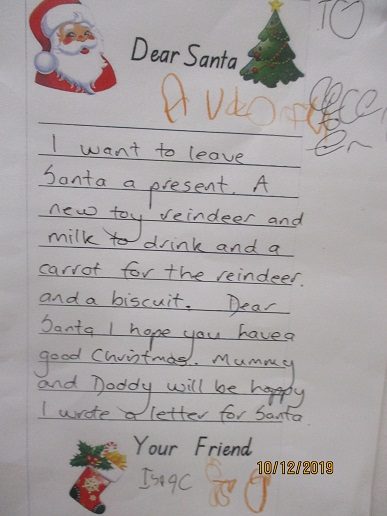 TO
Dear Santa
I want to leave
Santa a present. A
new toy reindeer and
milk to drink and a
carrot for the reindeer.
and a biscuit. Dear
Santa I hope you have a
good Christmas. Mummy
and Daddy will be happy
I wrote a letter for Santa.
Your Friend
Isaac
10/12/2019